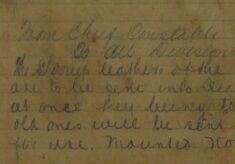 From Chief Constable
To All Divisions
The Stirrup leathers of the
are to be sent into
at once they being to
old ones will be sent
for use. Mounted